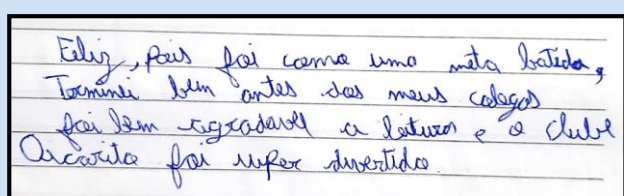 Feliz, pois foi como uma meta batida,
Terminei bem antes dos meus colegas
foi bem agradavel a leitura e o clube
Oscarito foi super divertido.